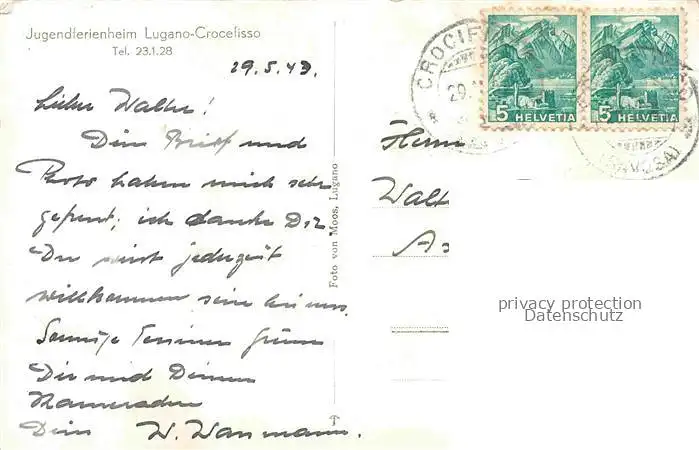 Jugendferienheim Lugano-Crocefisso
Tel. 23.1.28
29.5.43.
Lieber Walter!
Dein Brief und
Foto haben mich sehr
gefreut, ich danke Dir
Du wirst jederzeit
willkommen sein bei uns.
Sonnige Tessiner Grüsse
Dir und Deinen
Kameraden
Dein W. Wanmann.
Foto von Moos, Lugano
CROCIFI
29.
5 HELVETIA
5 HELVETIA
Herrn
Walt
privacy protection
Datenschutz